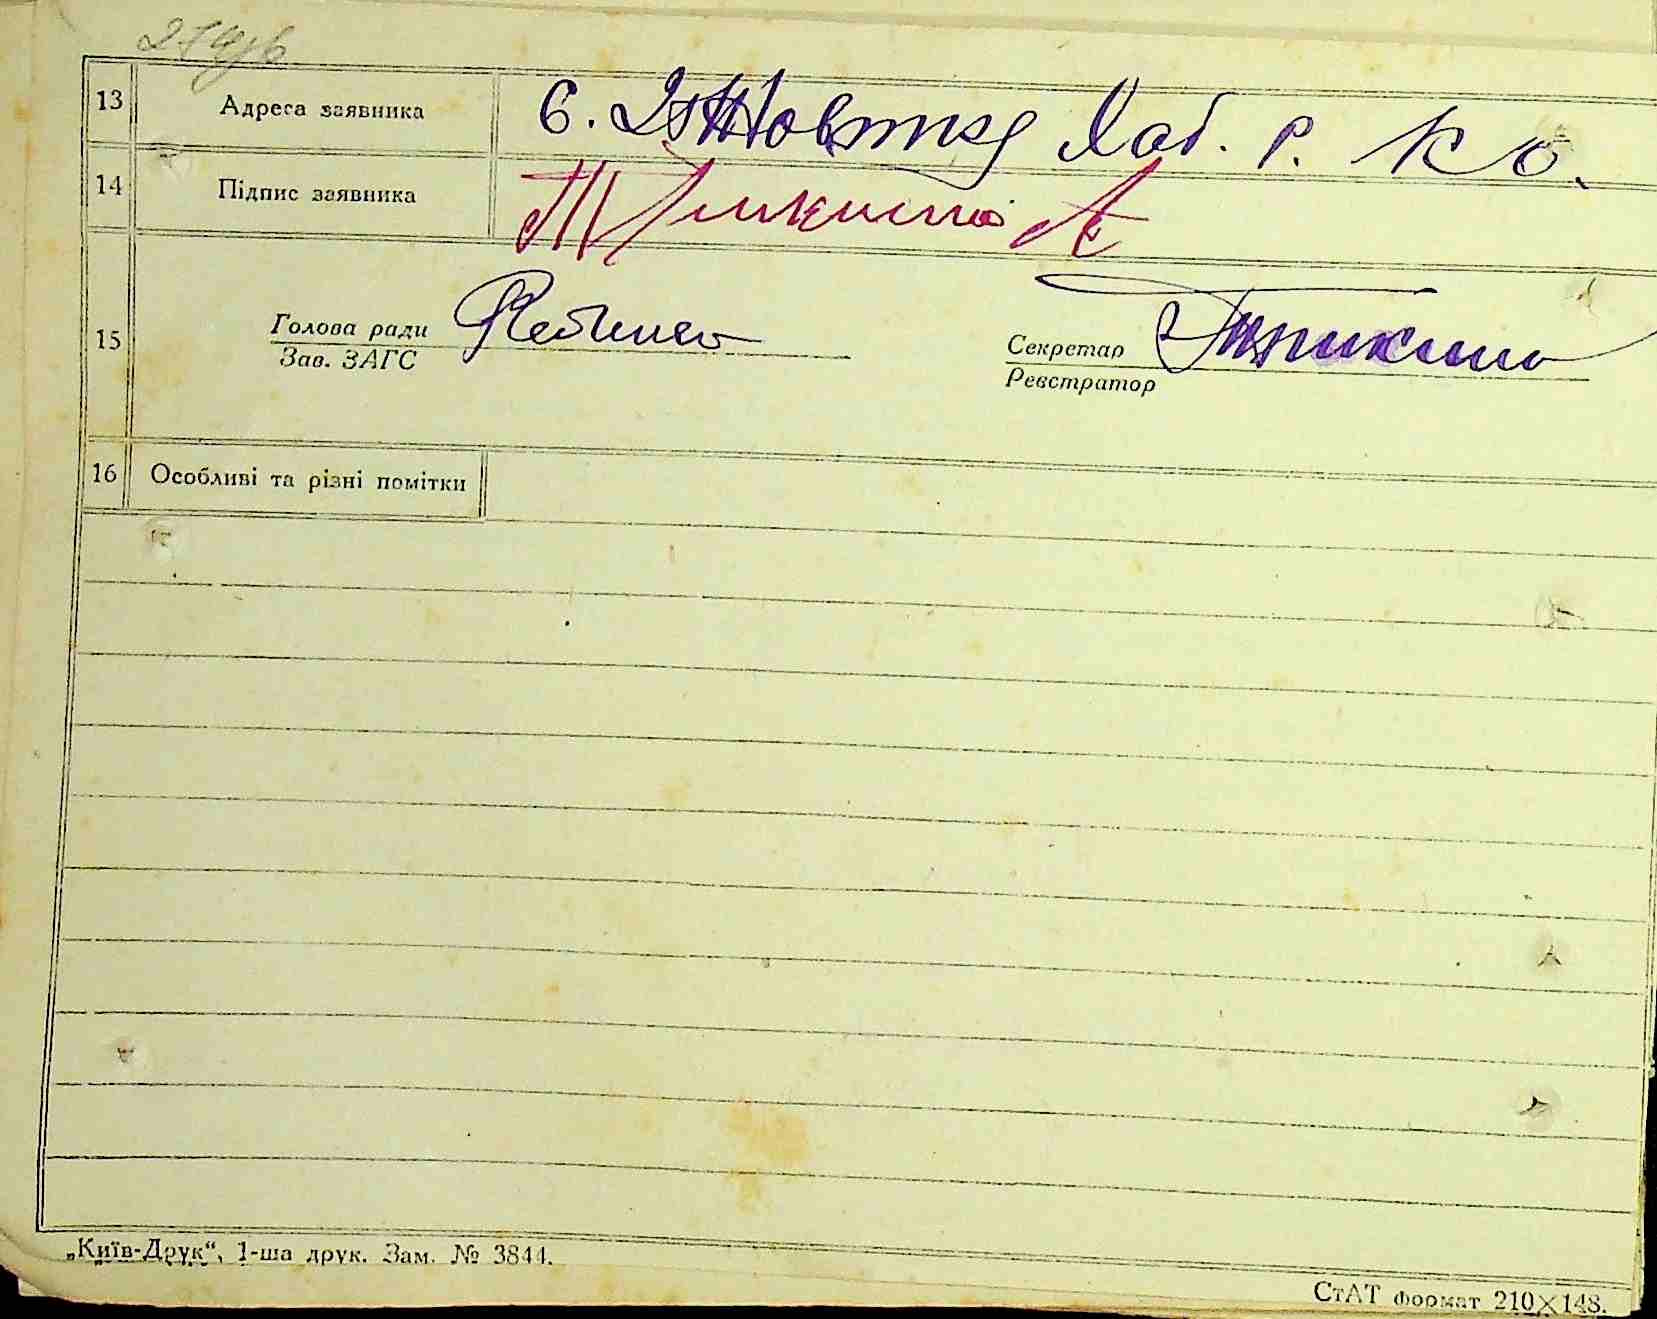 13 Адреса заявника с. Жовтня Хаб. р. К о.
14 Підпис заявника
15 Голова ради
Зав. ЗАГС
Секретар
Реєстратор
16 Особливі та різні помітки
„Київ-Друк“, 1-ша друк. Зам. № 3844.
СтАТ формат 210×148.